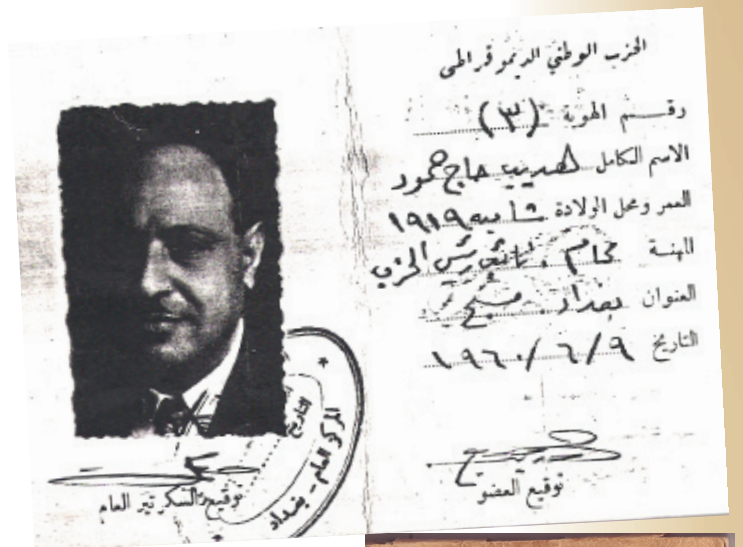 الحزب الوطني الديموقراطي
رقم الهوية (٣)
الاسم الكامل هديب حاج حمود
العمر ومحل الولادة شاميه ١٩١٩
المهنة محام. نائب رئيس الحزب
العنوان بغداد.
التاريخ ١٩٦٠/٦/٩
توقيع العضو
توقيع السكرتير العام
التاريخ
المركز العام - بغداد